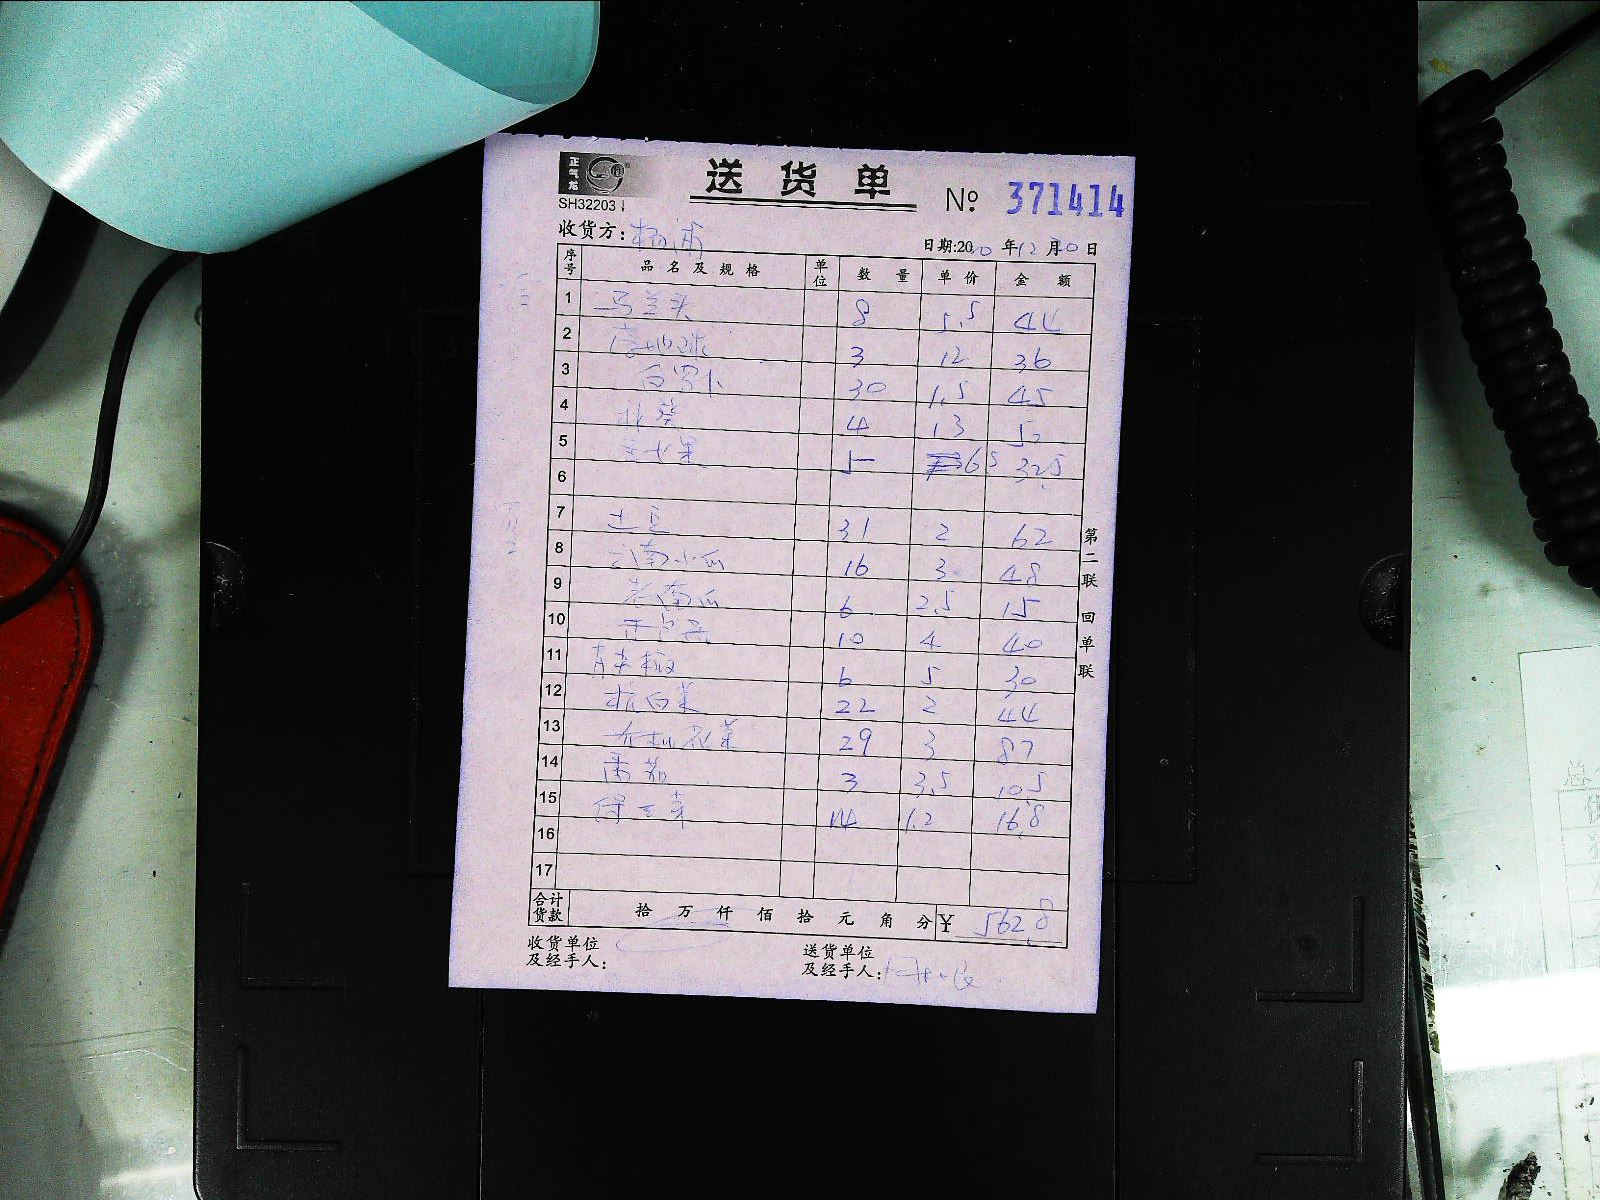 正气龙
送货单
SH32203
№ 371414
收货方: 杨浦
日期:2020年12月30日
序号 品名及规格 单位 数量 单价 金额
1 马兰头 8 5.5 44
2 3 12 36
3 白罗卜 30 1.5 45
4 4 13 52
5 5 65 32.5
6
7 土豆 31 2 62
8 云南小瓜 16 3 48
9 老南瓜 6 2.5 15
10 10 4 40
11 6 5 30
12 杭白菜 22 2 44
13 花菜 29 3 87
14 番茄 3 3.5 10.5
15 14 1.2 16.8
16
17
合计货款 拾万仟佰拾元角分 ¥ 562.8
收货单位及经手人:
送货单位及经手人:
第二联 回单联